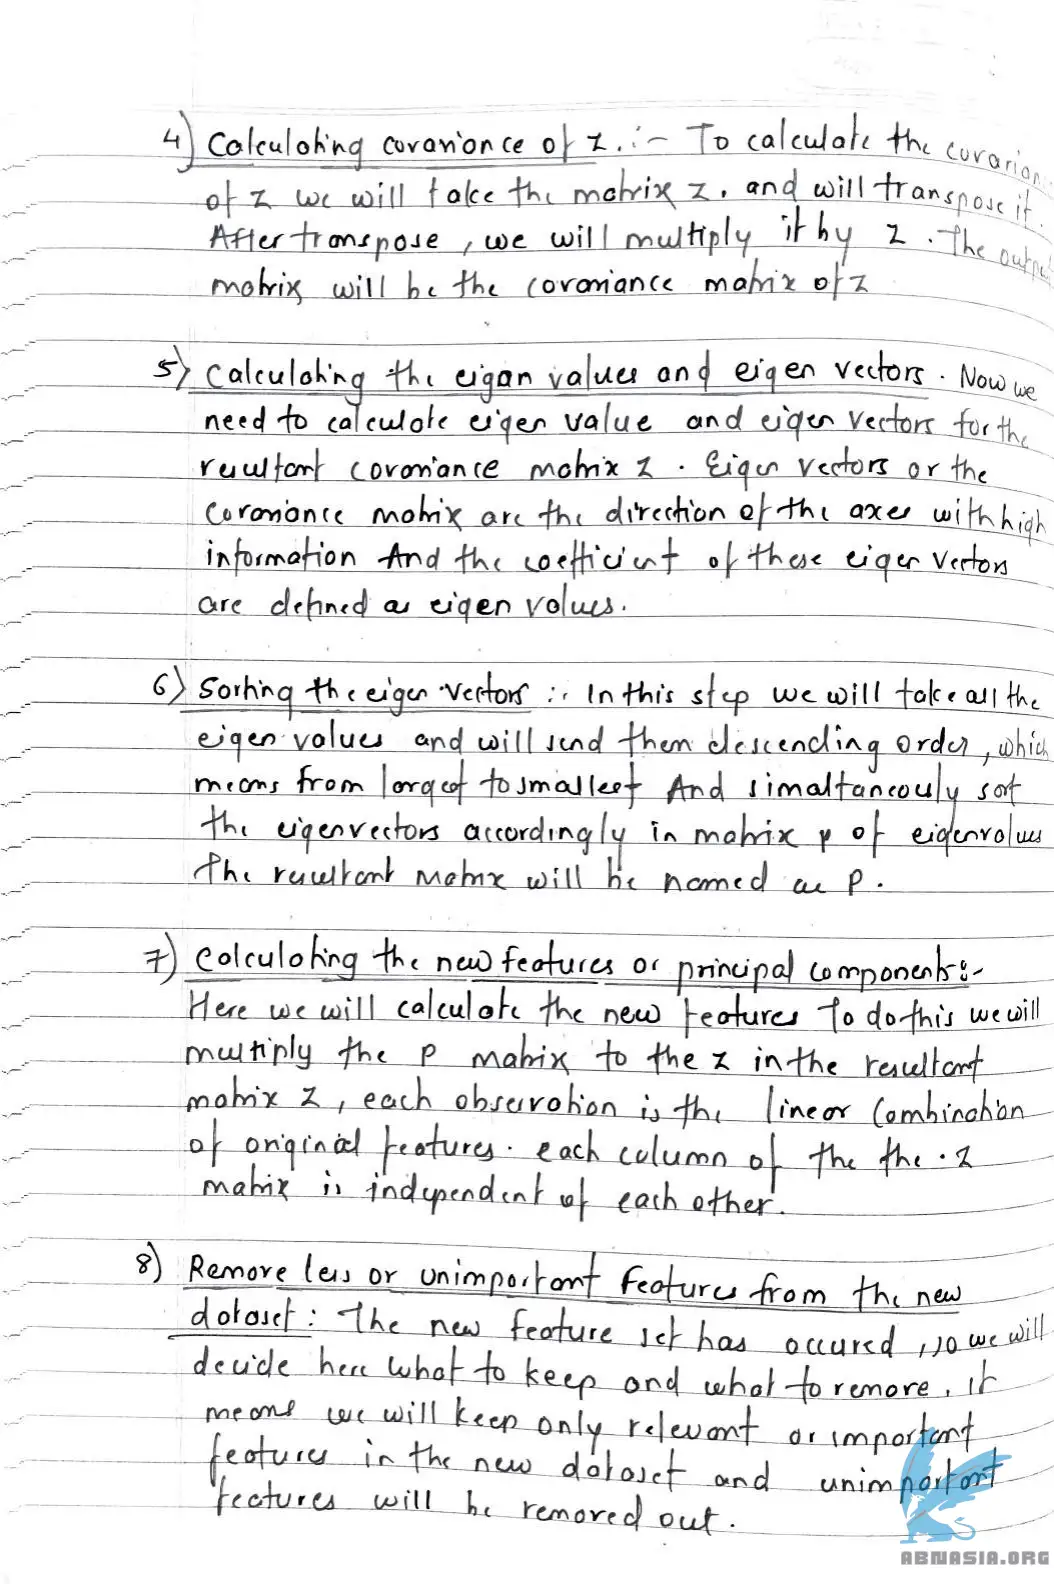 4) Calculating covariance of Z. :- To calculate the covarians
of Z we will take the matrix Z, and will transpose it.
After transpose, we will multiply it by Z. The output
matrix will be the covariance matrix of Z
5) Calculating the eigan values and eigen vectors. Now we
need to calculate eigen value and eigen vectors for the
resultant covariance matrix Z. Eigen vectors or the
covariance matrix are the direction of the axes with high
information And the coefficient of these eigen vectors
are defined as eigen values.
6) Sorting the eigen vectors :: In this step we will take all the
eigen values and will send them descending order, which
means from largest to smallest And simaltaneously sort
the eigenvectors accordingly in matrix p of eigenvalues
The resultant Matrix will be named as P.
7) Calculating the new features or principal components:-
Here we will calculate the new features To do this we will
multiply the P matrix to the Z in the resultant
matrix Z, each observation is the linear combination
of original features. each column of the the . Z
matrix is independent of each other.
8) Remove less or unimportant features from the new
dataset : The new feature set has occured, so we will
decide here what to keep and what to remove. it
means we will keep only relevant or important
features in the new dataset and unimportant
features will be removed out.
ABNASIA.ORG